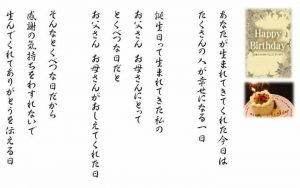 あなたが生まれてきてくれた今日は
たくさんの人が幸せになる一日
誕生日って生まれてきた私の
お父さん お母さんにとって
とくべつな日だと
お父さん お母さんがおしえてくれた日
そんなとくべつな日だから
感謝の気持ちをわすれないで
生んでくれてありがとうを伝える日
Happy
Birthday